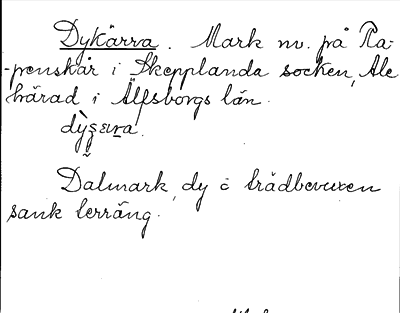 Dykärra. Mark nv. på Ra-
-penskår i Skepplanda socken, Ale
härad i Älfsborgs län.
Dalmark, dy å trädbevuxen
sank terräng.